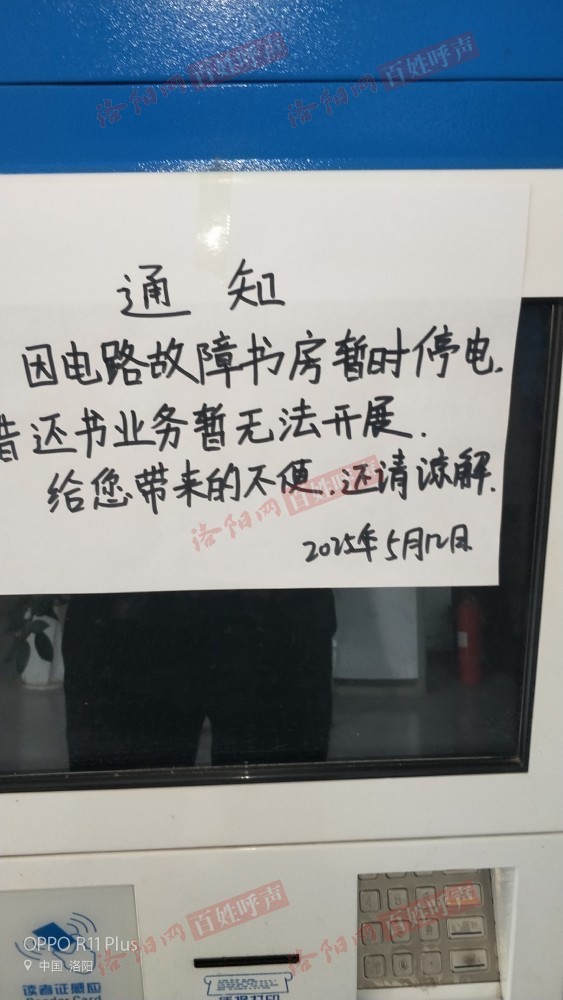 洛阳网 百姓呼声
洛阳网 百姓呼声
通知
因电路故障书房暂时停电.
借还书业务暂无法开展.
给您带来的不便.还请谅解.
洛阳网 百姓呼声
2025年5月12日
洛阳网 百姓呼声
OPPO R11 Plus
中国·洛阳
读者证感应
Reader Card